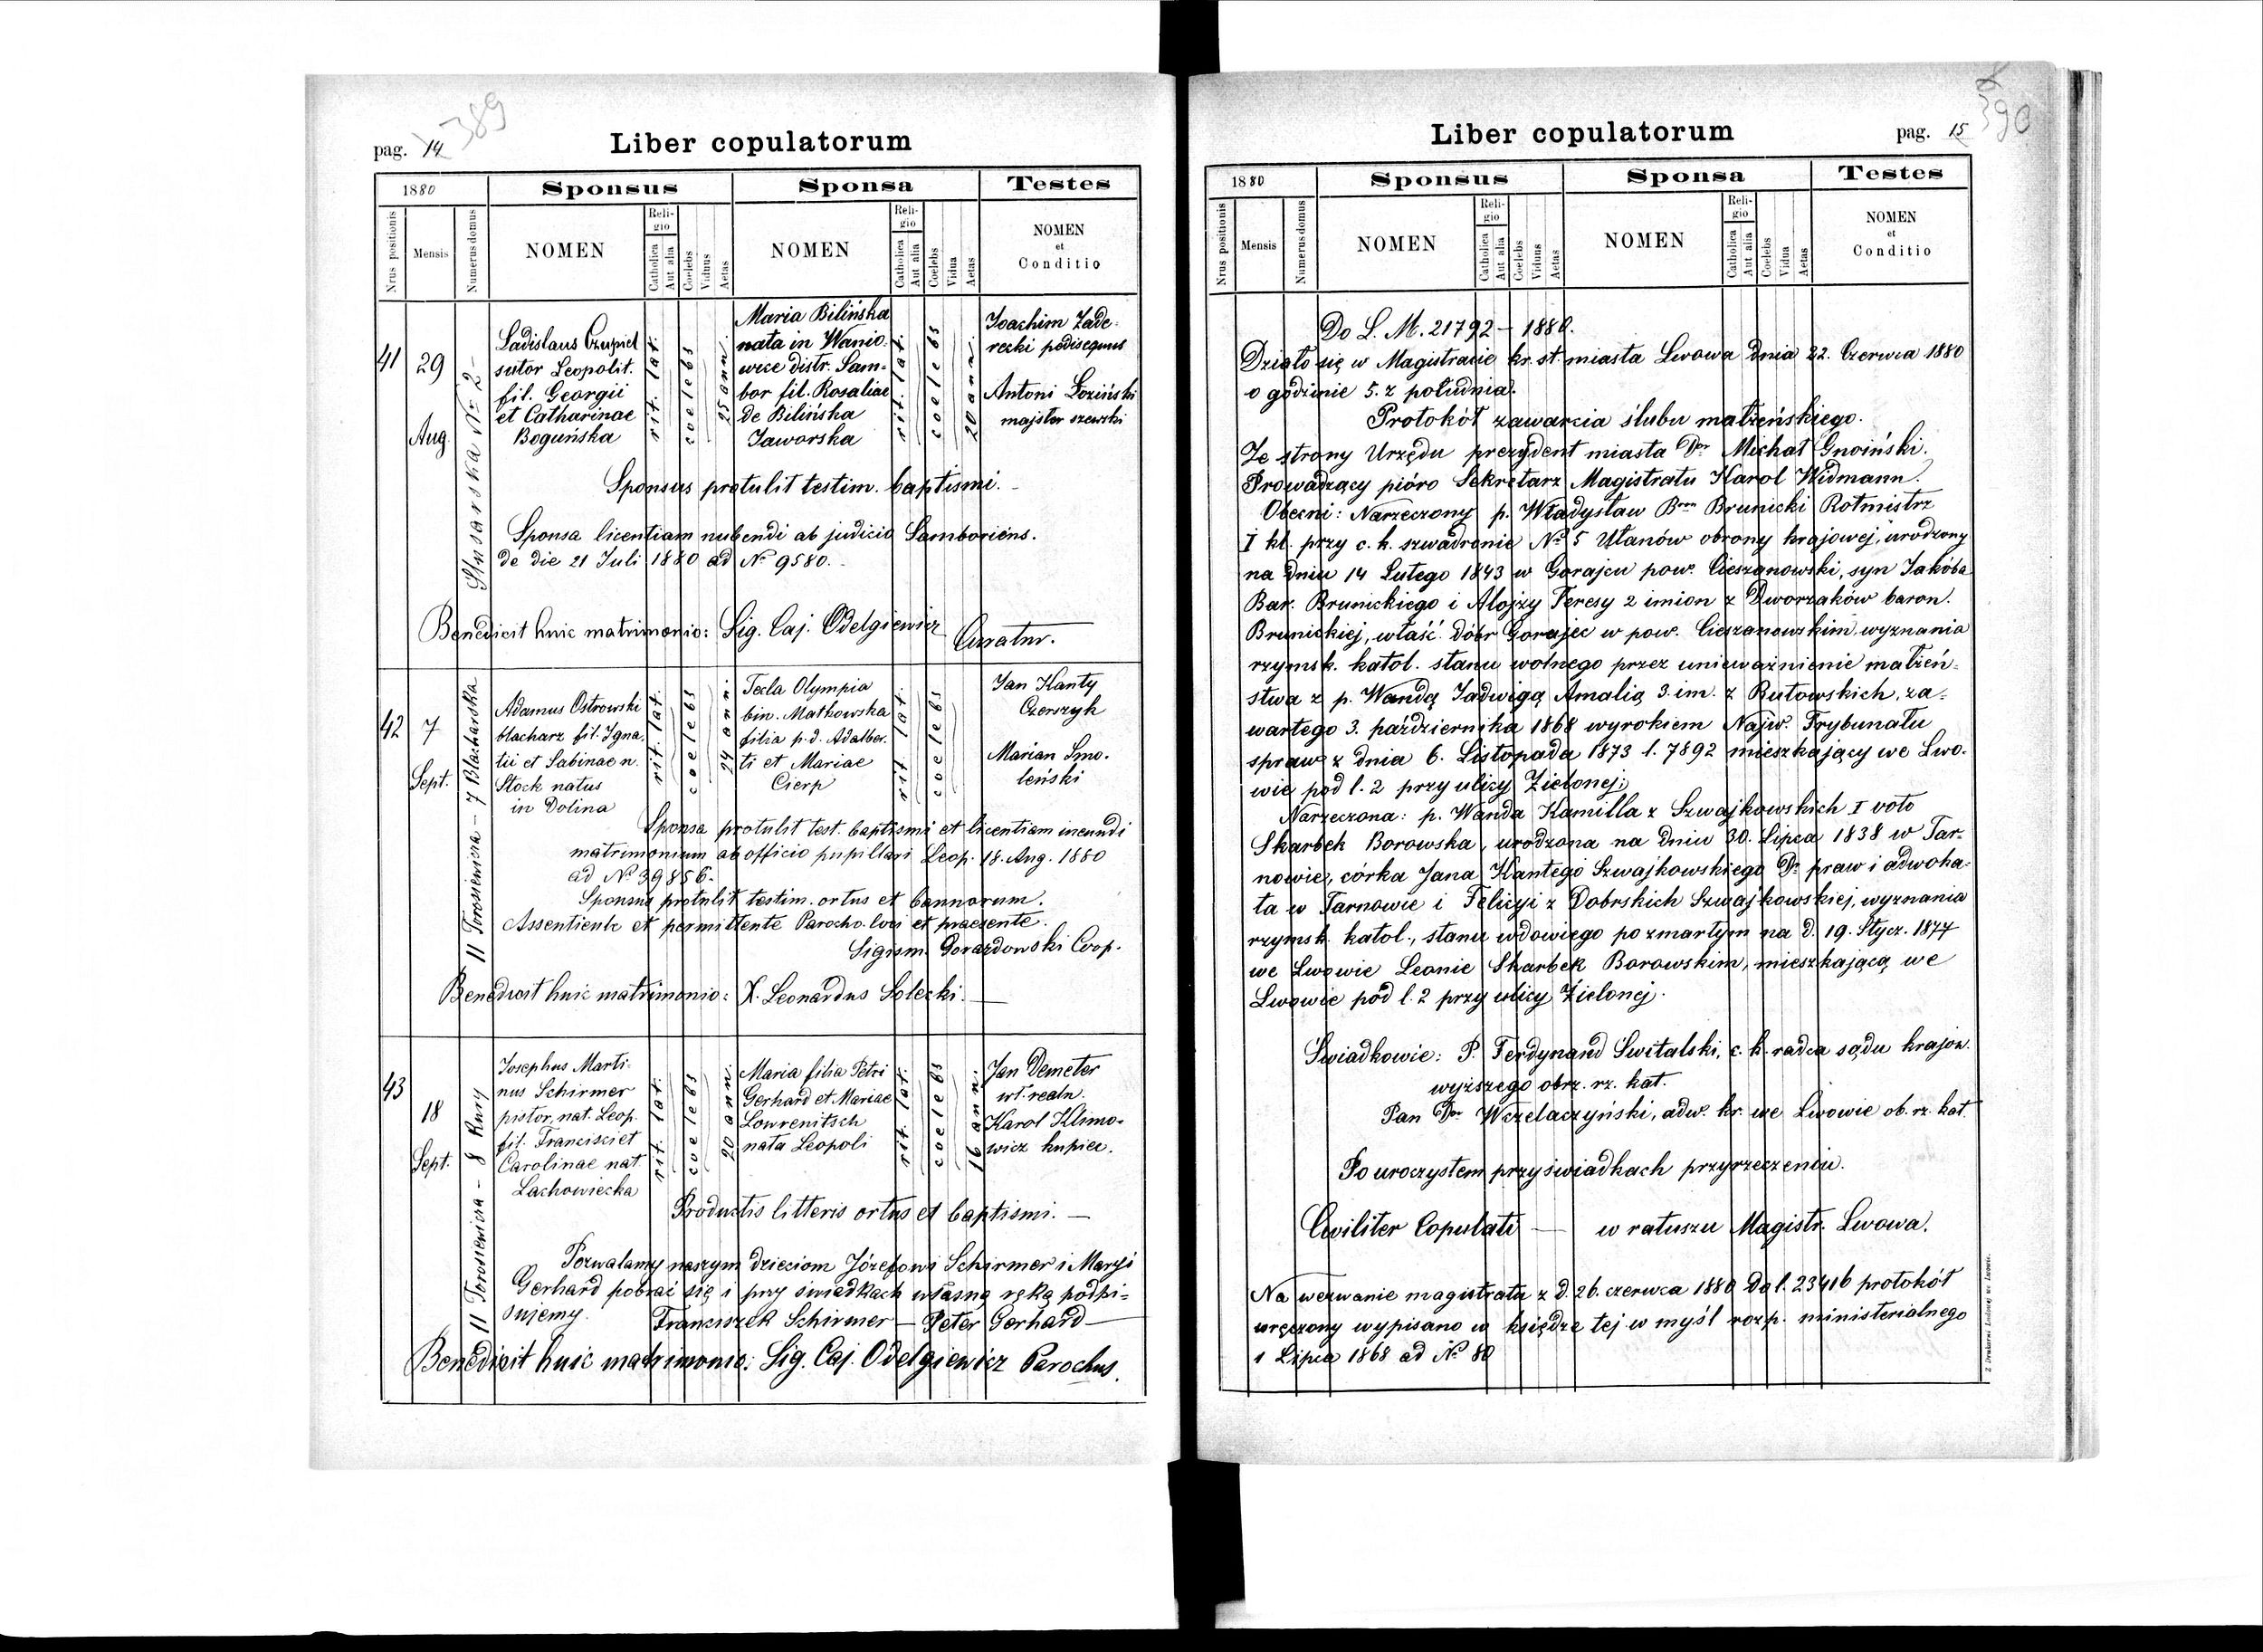 389
pag. 14
Liber copulatorum
1880
Sponsus
Sponsa
Testes
Nrus positionis
Mensis
Numerus domus
NOMEN
Religio
Catholica
Aut alia
Coelebs
Viduus
Aetas
NOMEN
Religio
Catholica
Aut alia
Coelebs
Vidua
Aetas
NOMEN
et
Conditio
41
29
Aug.
Slusarska Nr 2
Ladislaus Czupiel
sutor Leopolit.
fil. Georgii
et Catharinae
Boguńska
rit. lat.
coelebs
25 anni
Maria Bilińska
nata in Wanio-
wice distr. Sam-
bor fil. Rosaliae
de Bilińska
Jaworska
rit. lat.
coelebs
20 anni
Joachim Zade-
recki pedisequus
Antoni Łoziński
majster szewski
Sponsus protulit testim. baptismi. -
Sponsa licentiam nubendi ab judicio Samboriens.
de die 21 Juli 1880 ad No 9580. -
Benedicit huic matrimonio: Sig. Caj. Odelgiewicz
Curatur.
42
7
Sept.
11 Torosiewicza - 7 Blacharska
Adamus Ostrowski
blacharz fil. Igna-
tii et Sabinae n.
Stock natus
in Dolina
rit. lat.
coelebs
24 anni
Tecla Olympia
bin. Matkowska
filia p.d. Adalber-
ti et Mariae
Cierp
rit. lat.
coelebs
Jan Kanty
Czerszyk
Marian Smo-
leński
Sponsa protulit test. baptismi et licentiam ineundi
matrimonium ab officio pupillari Leop. 18. Aug. 1880
ad No 39856.
Sponsus protulit testim. ortus et bannorum.
Assentiente et permittente Parocho loci et praezente.
Sigism. Gorazdowski Coop.
Benedicit huic matrimonio: X. Leonardus Solecki.
43
18
Sept.
11 Torosiewicza - 8 Rury
Josephus Marti-
nus Schirmer
pistor, nat. Leop.
fil. Francisci et
Carolinae nat.
Lachowiecka
rit. lat.
coelebs
20 anni
Maria filia Petri
Gerhard et Mariae
Lowrenitsch
nata Leopoli
rit. lat.
coelebs
16 ann.
Jan Demeter
wł. realn.
Karol Klimo-
wicz kupiec.
Productis litteris ortus et baptismi. —
Pozwalamy naszym dzieciom Józefowi Schirmer i Maryi
Gerhard pobrać się i przy świadkach własną ręką podpi=
sujemy. Franciszek Schirmer — Peter Gerhard —
Benedicit huic matrimonio: Sig. Caj. Odelgiewicz Parochus.
390
Liber copulatorum
pag. 15
1880
Sponsus
Sponsa
Testes
Nrus positionis
Mensis
Numerus domus
NOMEN
Religio
Catholica
Aut alia
Coelebs
Viduus
Aetas
NOMEN
Religio
Catholica
Aut alia
Coelebs
Vidua
Aetas
NOMEN
et
Conditio
Do L. M. 21792 - 1880.
Działo się w Magistracie kr. st. miasta Lwowa dnia 22. Czerwca 1880
o godzinie 5. z południa.
Protokół zawarcia ślubu małżeńskiego.
Ze strony Urzędu prezydent miasta Dr Michał Gnoiński.
Prowadzący pióro Sekretarz Magistratu Karol Widmann.
Obecni: Narzeczony p. Władysław Bron Brunicki Rotmistrz
I kl. przy c. k. szwadronie No 5 Ułanów obrony krajowej, urodzony
na dniu 14 Lutego 1843 w Gorajcu pow. Cieszanowski, syn Jakóba
Bar. Brunickiego i Alojzy Teresy 2 imion z Dworzaków baron.
Brunickiej, właść. dóbr Gorajec w pow. Cieszanowskim, wyznania
rzymsk. katol. stanu wolnego przez unieważnienie małżeń-
stwa z p. Wandą Jadwigą Amalią 3. im. z Rutowskich, za-
wartego 3. października 1868 wyrokiem Najw. Trybunału
spraw. z dnia 6. Listopada 1873 l. 7892 mieszkający we Lwo-
wie pod l. 2 przy ulicy Zielonej;
Narzeczona: p. Wanda Kamilla z Szwajkowskich I voto
Skarbek Borowska, urodzona na dniu 30. Lipca 1838 w Tar-
nowie, córka Jana Kantego Szwajkowskiego Dr praw i adwoka-
ta w Tarnowie i Felicyi z Dobrskich Szwajkowskiej, wyznania
rzymsk. katol., stanu wdowiego po zmarłym na d. 19. Stycz. 1877
we Lwowie Leonie Skarbek Borowskim, mieszkającą we
Lwowie pod l. 2 przy ulicy Zielonej.
Świadkowie: P. Ferdynand Switalski, c. k. radca sądu krajow.
wyższego obrz. rz. kat.
Pan Dr Wszelaczyński, adw. kr. we Lwowie ob. rz. kat.
Po uroczystem przy świadkach przyrzeczeniu.
Civiliter Copulati — w ratuszu Magistr. Lwowa.
Na wezwanie magistratu z d. 26. czerwca 1880 do l. 23416 protokół
wręczony wypisano w księdze tej w myśl rozp. ministerialnego
1 Lipca 1868 ad No 80
Z Drukarni Ludowej we Lwowie.